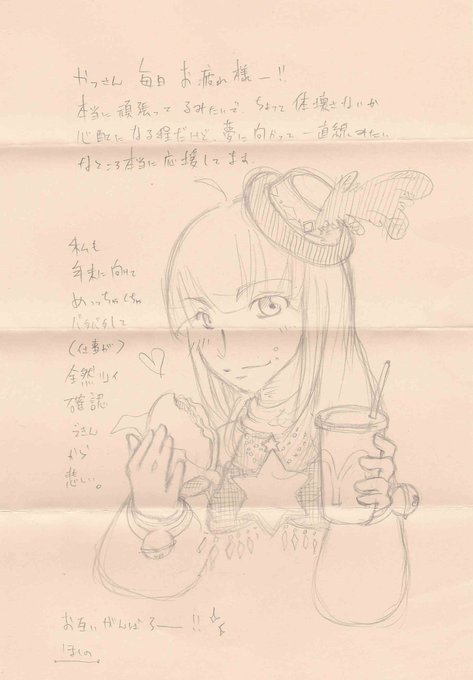 やっさん 毎日 お疲れ様ー!!
本当に頑張ってるみたいで、ちょっと体壊さないか
心配になる程だけど、夢に向かって一直線みたい
なところ本当に応援してます。
私も
年末に向けて
めっちゃくちゃ
バタバタして
(仕事が)
全然
確認
から
悲しい。
お互いがんばろー!!
ほしの